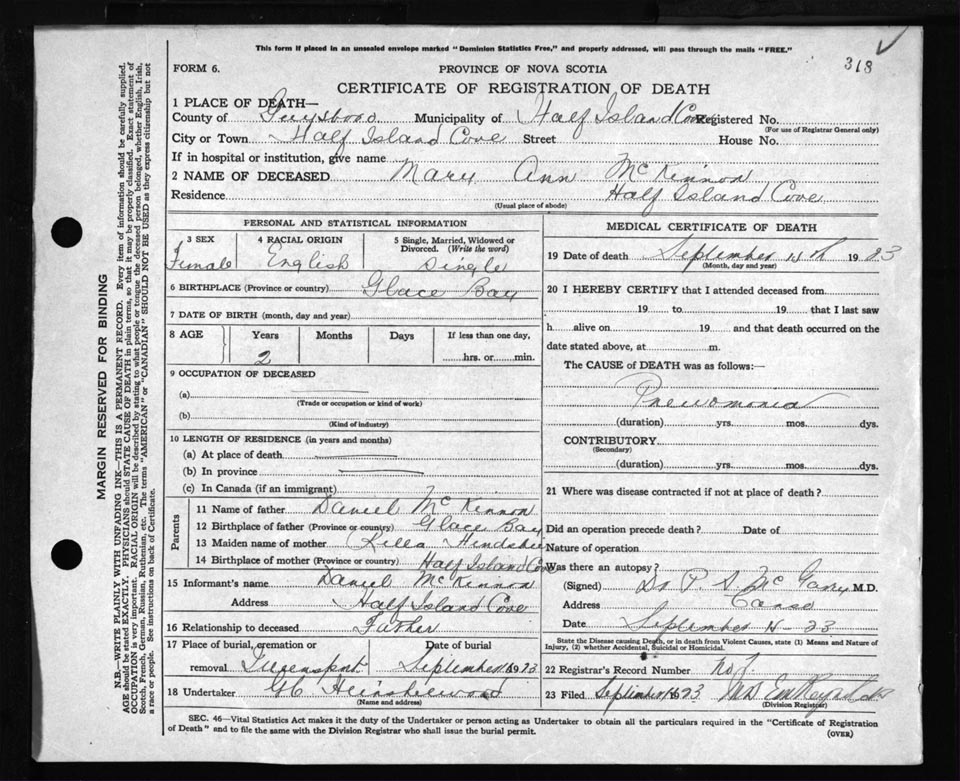 This form if placed in an unsealed envelope marked "Dominion Statistics Free," and properly addressed, will pass through the mails "FREE."
318
FORM 6.
PROVINCE OF NOVA SCOTIA
CERTIFICATE OF REGISTRATION OF DEATH
1 PLACE OF DEATH—
County of Guysboro Municipality of Half Island Cove Registered No.
(For use of Registrar General only)
City or Town Half Island Cove Street House No.
If in hospital or institution, give name
2 NAME OF DECEASED Mary Ann McKinnon
Residence Half Island Cove
(Usual place of abode)
PERSONAL AND STATISTICAL INFORMATION
3 SEX 4 RACIAL ORIGIN 5 Single, Married, Widowed or Divorced. (Write the word)
Female English Single
6 BIRTHPLACE (Province or country) Glace Bay
7 DATE OF BIRTH (month, day and year)
8 AGE Years Months Days If less than one day,
2 hrs. or min.
9 OCCUPATION OF DECEASED
(a)
(Trade or occupation or kind of work)
(b)
(Kind of industry)
10 LENGTH OF RESIDENCE (in years and months)
(a) At place of death
(b) In province
(c) In Canada (if an immigrant)
Parents
11 Name of father Daniel McKinnon
12 Birthplace of father (Province or country) Glace Bay
13 Maiden name of mother
14 Birthplace of mother (Province or country) Half Island Cove
15 Informant's name Daniel McKinnon
Address Half Island Cove
16 Relationship to deceased Father
17 Place of burial, cremation or removal Date of burial
September 1923
18 Undertaker
(Name and address)
MEDICAL CERTIFICATE OF DEATH
19 Date of death September th 1923
(Month, day and year)
20 I HEREBY CERTIFY that I attended deceased from
19 to 19 that I last saw
h alive on 19 and that death occurred on the
date stated above, at m.
The CAUSE of DEATH was as follows:—
Pneumonia
(duration) yrs. mos. dys.
CONTRIBUTORY
(Secondary)
(duration) yrs. mos. dys.
21 Where was disease contracted if not at place of death?
Did an operation precede death? Date of
Nature of operation
Was there an autopsy?
(Signed) Dr P. S. McGarry M.D.
Address Canso
Date September 23
State the Disease causing Death, or in death from Violent Causes, state (1) Means and Nature of Injury, (2) whether Accidental, Suicidal or Homicidal.
22 Registrar's Record Number No
23 Filed September 1923 Mrs Reynolds
(Division Registrar)
SEC. 46—Vital Statistics Act makes it the duty of the Undertaker or person acting as Undertaker to obtain all the particulars required in the "Certificate of Registration
of Death" and to file the same with the Division Registrar who shall issue the burial permit. (OVER)
MARGIN RESERVED FOR BINDING
N.B.—WRITE PLAINLY WITH UNFADING INK—THIS IS A PERMANENT RECORD. Every item of information should be carefully supplied.
AGE should be stated EXACTLY. PHYSICIANS should STATE CAUSE OF DEATH in plain terms, so that it may be properly classified. Exact statement of
OCCUPATION is very important. RACIAL ORIGIN will be described by stating to what people or tongue the deceased person belonged, whether English, Irish,
Scotch, French, German, Russian, Ruthenian, etc. The terms "AMERICAN" or "CANADIAN" SHOULD NOT BE USED as they express citizenship but not
a race or people. See instructions on back of Certificate.